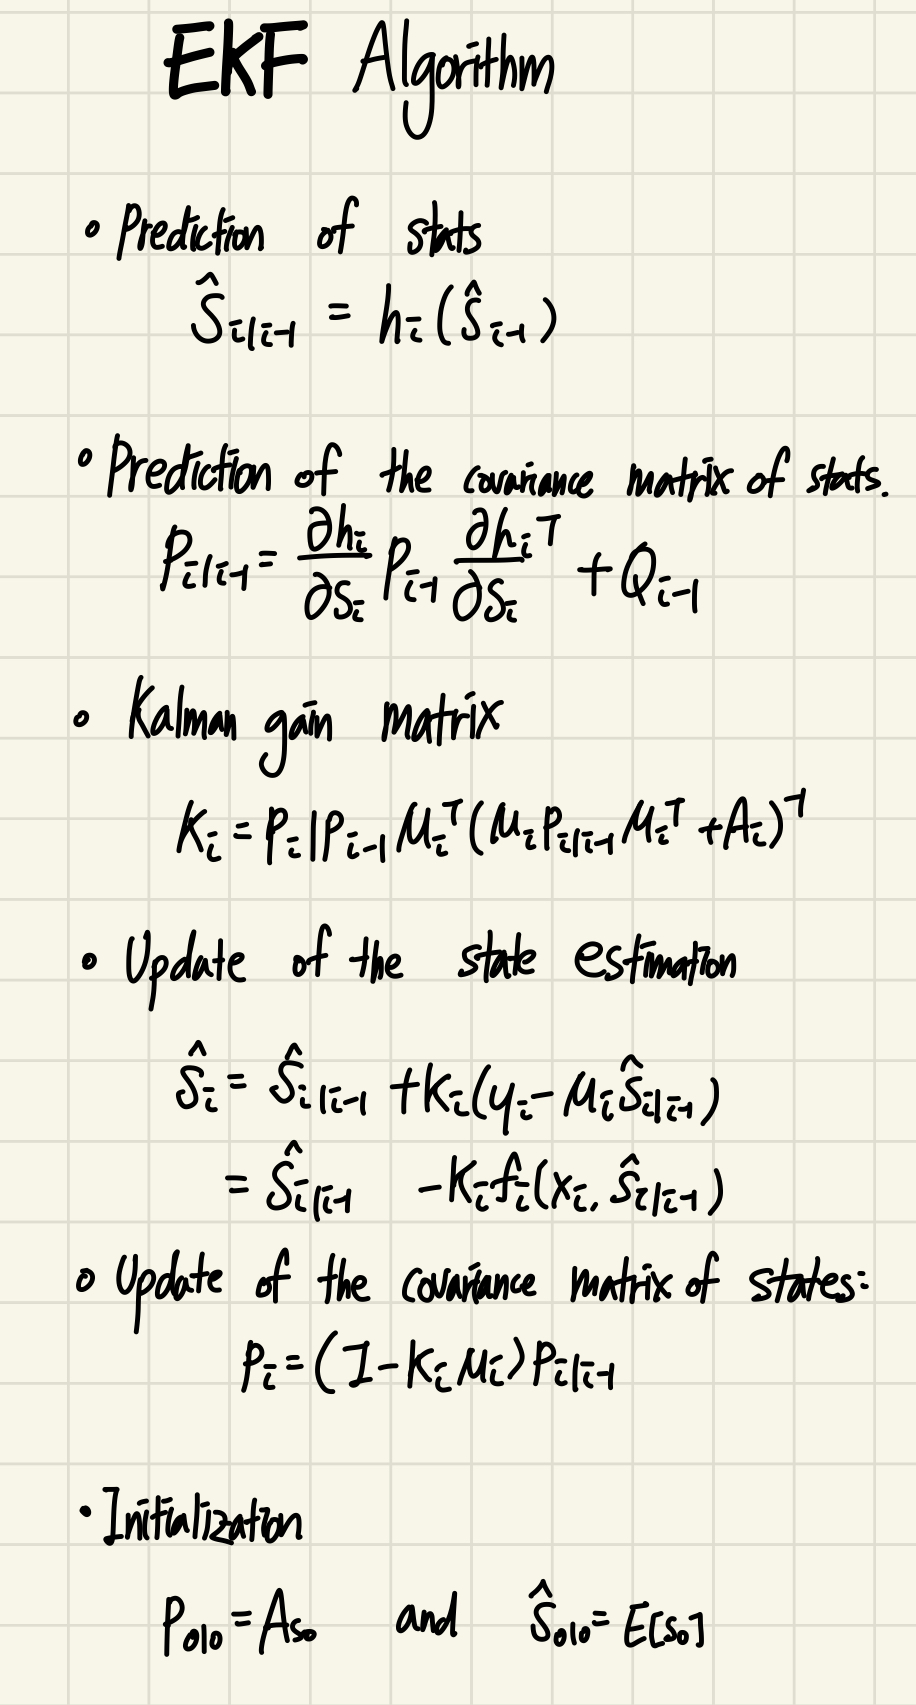 EKF Algorithm
• Prediction of stats
Ŝ_{i|i-1} = h_i(ŝ_{i-1})
• Prediction of the covariance matrix of stats.
P_{i|i-1} = ∂h_i/∂s_i P_{i-1} ∂h_i^T/∂s_i + Q_{i-1}
• Kalman gain matrix
K_i = P_i|P_{i-1} M_i^T (M_i P_{i|i-1} M_i^T + A_i)^{-1}
• Update of the state estimation
ŝ_i = ŝ_{i|i-1} + K_i(y_i - M_i ŝ_{i|i-1})
= ŝ_{i|i-1} - K_i f_i(x_i, ŝ_{i|i-1})
• Update of the covariance matrix of states:
P_i = (I - K_i M_i) P_{i|i-1}
• Initialization
P_{0|0} = A_{s_0} and ŝ_{0|0} = E[s_0]